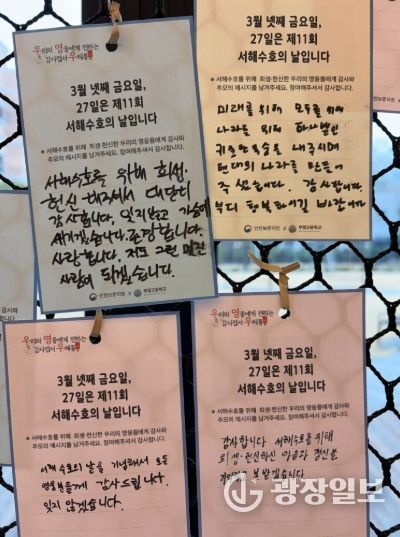 우리의 영웅에게 전하는
감사엽서 우체통
3월 넷째 금요일,
27일은 제11회
서해수호의 날입니다
※ 서해수호를 위해 희생·헌신한 우리의 영웅들에게 감사와
추모의 메시지를 남겨주세요. 참여해주셔서 감사합니다.
서해수호를 위해 희생,
헌신 해주셔서 대단히
감사합니다. 잊지않고 가슴에
새기겠습니다. 존경합니다.
사랑합니다. 저도 그런 멋진
사람이 되겠습니다.
인천보훈지청 x 부평고등학교
3월 넷째 금요일,
27일은 제11회
서해수호의 날입니다
※ 서해수호를 위해 희생·헌신한 우리의 영웅들에게 감사와
추모의 메시지를 남겨주세요. 참여해주셔서 감사합니다.
미래를 위해 모두를 위해
나라를 위해 하나뿐인
귀중한 목숨을 내주시며
현대의 나라를 만들어
주셨습니다. 감사합니다.
부디 행복하시길 바랍니다
인천보훈지청 x 부평고등학교
우리의 영웅에게 전하는
감사엽서 우체통
3월 넷째 금요일,
27일은 제11회
서해수호의 날입니다
※ 서해수호를 위해 희생·헌신한 우리의 영웅들에게 감사와
추모의 메시지를 남겨주세요. 참여해주셔서 감사합니다.
서해 수호의 날을 기념해서 모든
영웅분들께 감사드립니다.
잊지 않겠습니다.
우리의 영웅에게 전하는
감사엽서 우체통
3월 넷째 금요일,
27일은 제11회
서해수호의 날입니다
※ 서해수호를 위해 희생·헌신한 우리의 영웅들에게 감사와
추모의 메시지를 남겨주세요. 참여해주셔서 감사합니다.
감사합니다 서해수호를 위해
희생·헌신하신 마음과 정신을
기억하고 본받겠습니다
광장일보